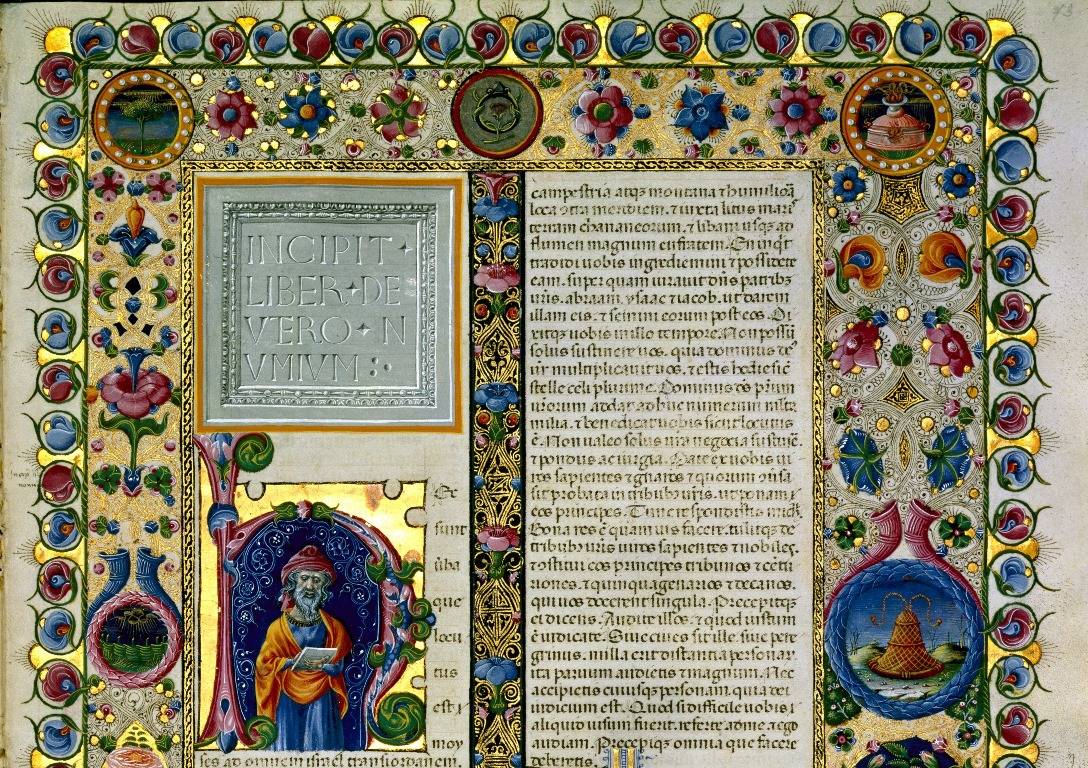 INCIPIT
LIBER DE
VTERO N
VMIVM
Ec
sunt
ūba
que
locu
tus
est
moy
ses ad omnem israel transiordanem.
campestria atqȝ montana ⁊ humilioā
loca ɔtra meridiem. ⁊ iuxta litus maris
terram chananeorum. ⁊ libani usqȝ ad
flumen magnum eufratem. En inqͥt
tradidi uobis ingredimini ⁊ possidete
eam. super quam iurauit dn̄s patribȝ
uris. abraam. ysaac ⁊ iacob. ut daret
illam eis. ⁊ semini eorum post eos. Di
xitqȝ uobis in illo tempore. Non possū
solus sustinere uos. quia dominus deͧ
ur̄ multiplicauit uos. ⁊ estis hodie sic̄
stelle celi plurime. Dominus deͧ p̄rum
urorum addat ad hūc numerum multa
milia. ⁊ benedicat uobis sicut locutus
ē. Non ualeo solus ur̄a negocia sustinē.
⁊ pondus ac iurgia. Date ex uobis ui
ros sapientes ⁊ gnaros ⁊ quorum ɔuersa
sit probata in tribubȝ ur̄is. ut ponam
eos principes. Tunc respondistis michi
Bona res ē quam uis facere. tuliqȝ de
tribubȝ ur̄is uiros sapientes ⁊ nobiles.
⁊ ɔstitui eos principes tribunos ⁊ cēti
riones. ⁊ quinquagenarios ⁊ decanos.
qui uos docerent singula. Precepiqȝ
ei dicens. Audite illos. ⁊ quod iustum
ē iudicate. Siue ciues sit ille. siue pere
grinus. nulla erit distantia personarȝ
ita paruum audietis ⁊ magnum. Nec
accipietis cuiusqȝ personam. quia dei
iudicium est. Quod si difficile uobis
aliquid uisum fuerit. referte ad me. ⁊ ego
audiam. Precepiqȝ omnia que facere
deberetis.